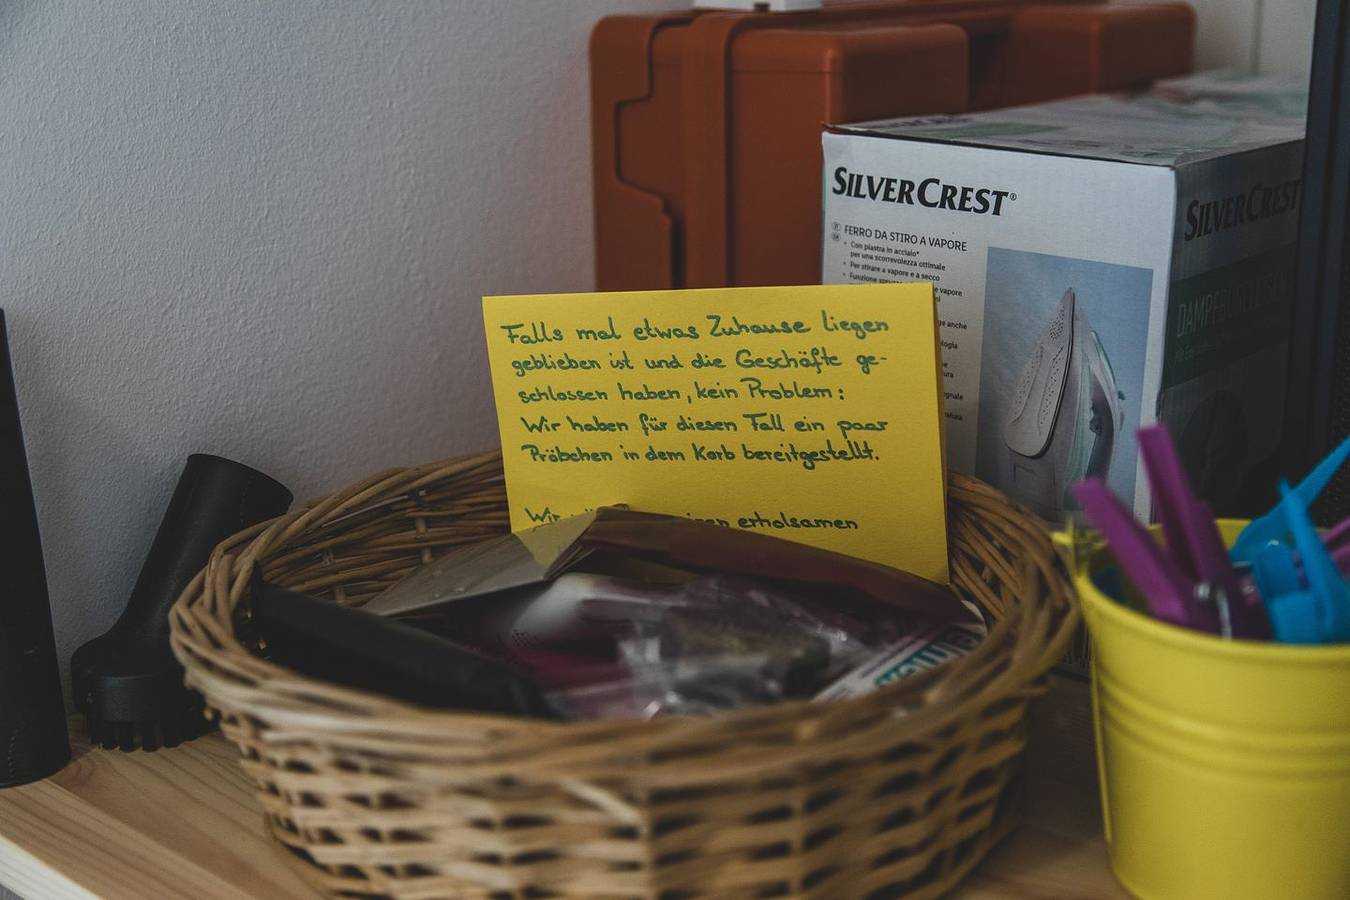 Falls mal etwas Zuhause liegen
geblieben ist und die Geschäfte ge-
schlossen haben, kein Problem:
Wir haben für diesen Fall ein paar
Pröbchen in dem Korb bereitgestellt.
Wir erholsamen
SILVERCREST®
FERRO DA STIRO A VAPORE
Con piastra in acciaio*
per una scorrevolezza ottimale
Per stirare a vapore e a secco
Funzione
vapore
anche
SILVERCREST